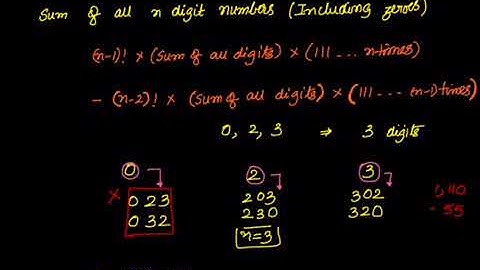 Sum of all n digit numbers (Including zeroes)
(n-1)! × (Sum of all digits) × (111 ... n-times)
- (n-2)! × (Sum of all digits) × (111 ... (n-1) times)
0, 2, 3 ⇒ 3 digits
0 2 3
× 0 2 3 2 0 3 3 0 2 1,110
0 3 2 2 3 0 3 2 0 - 55
n=3